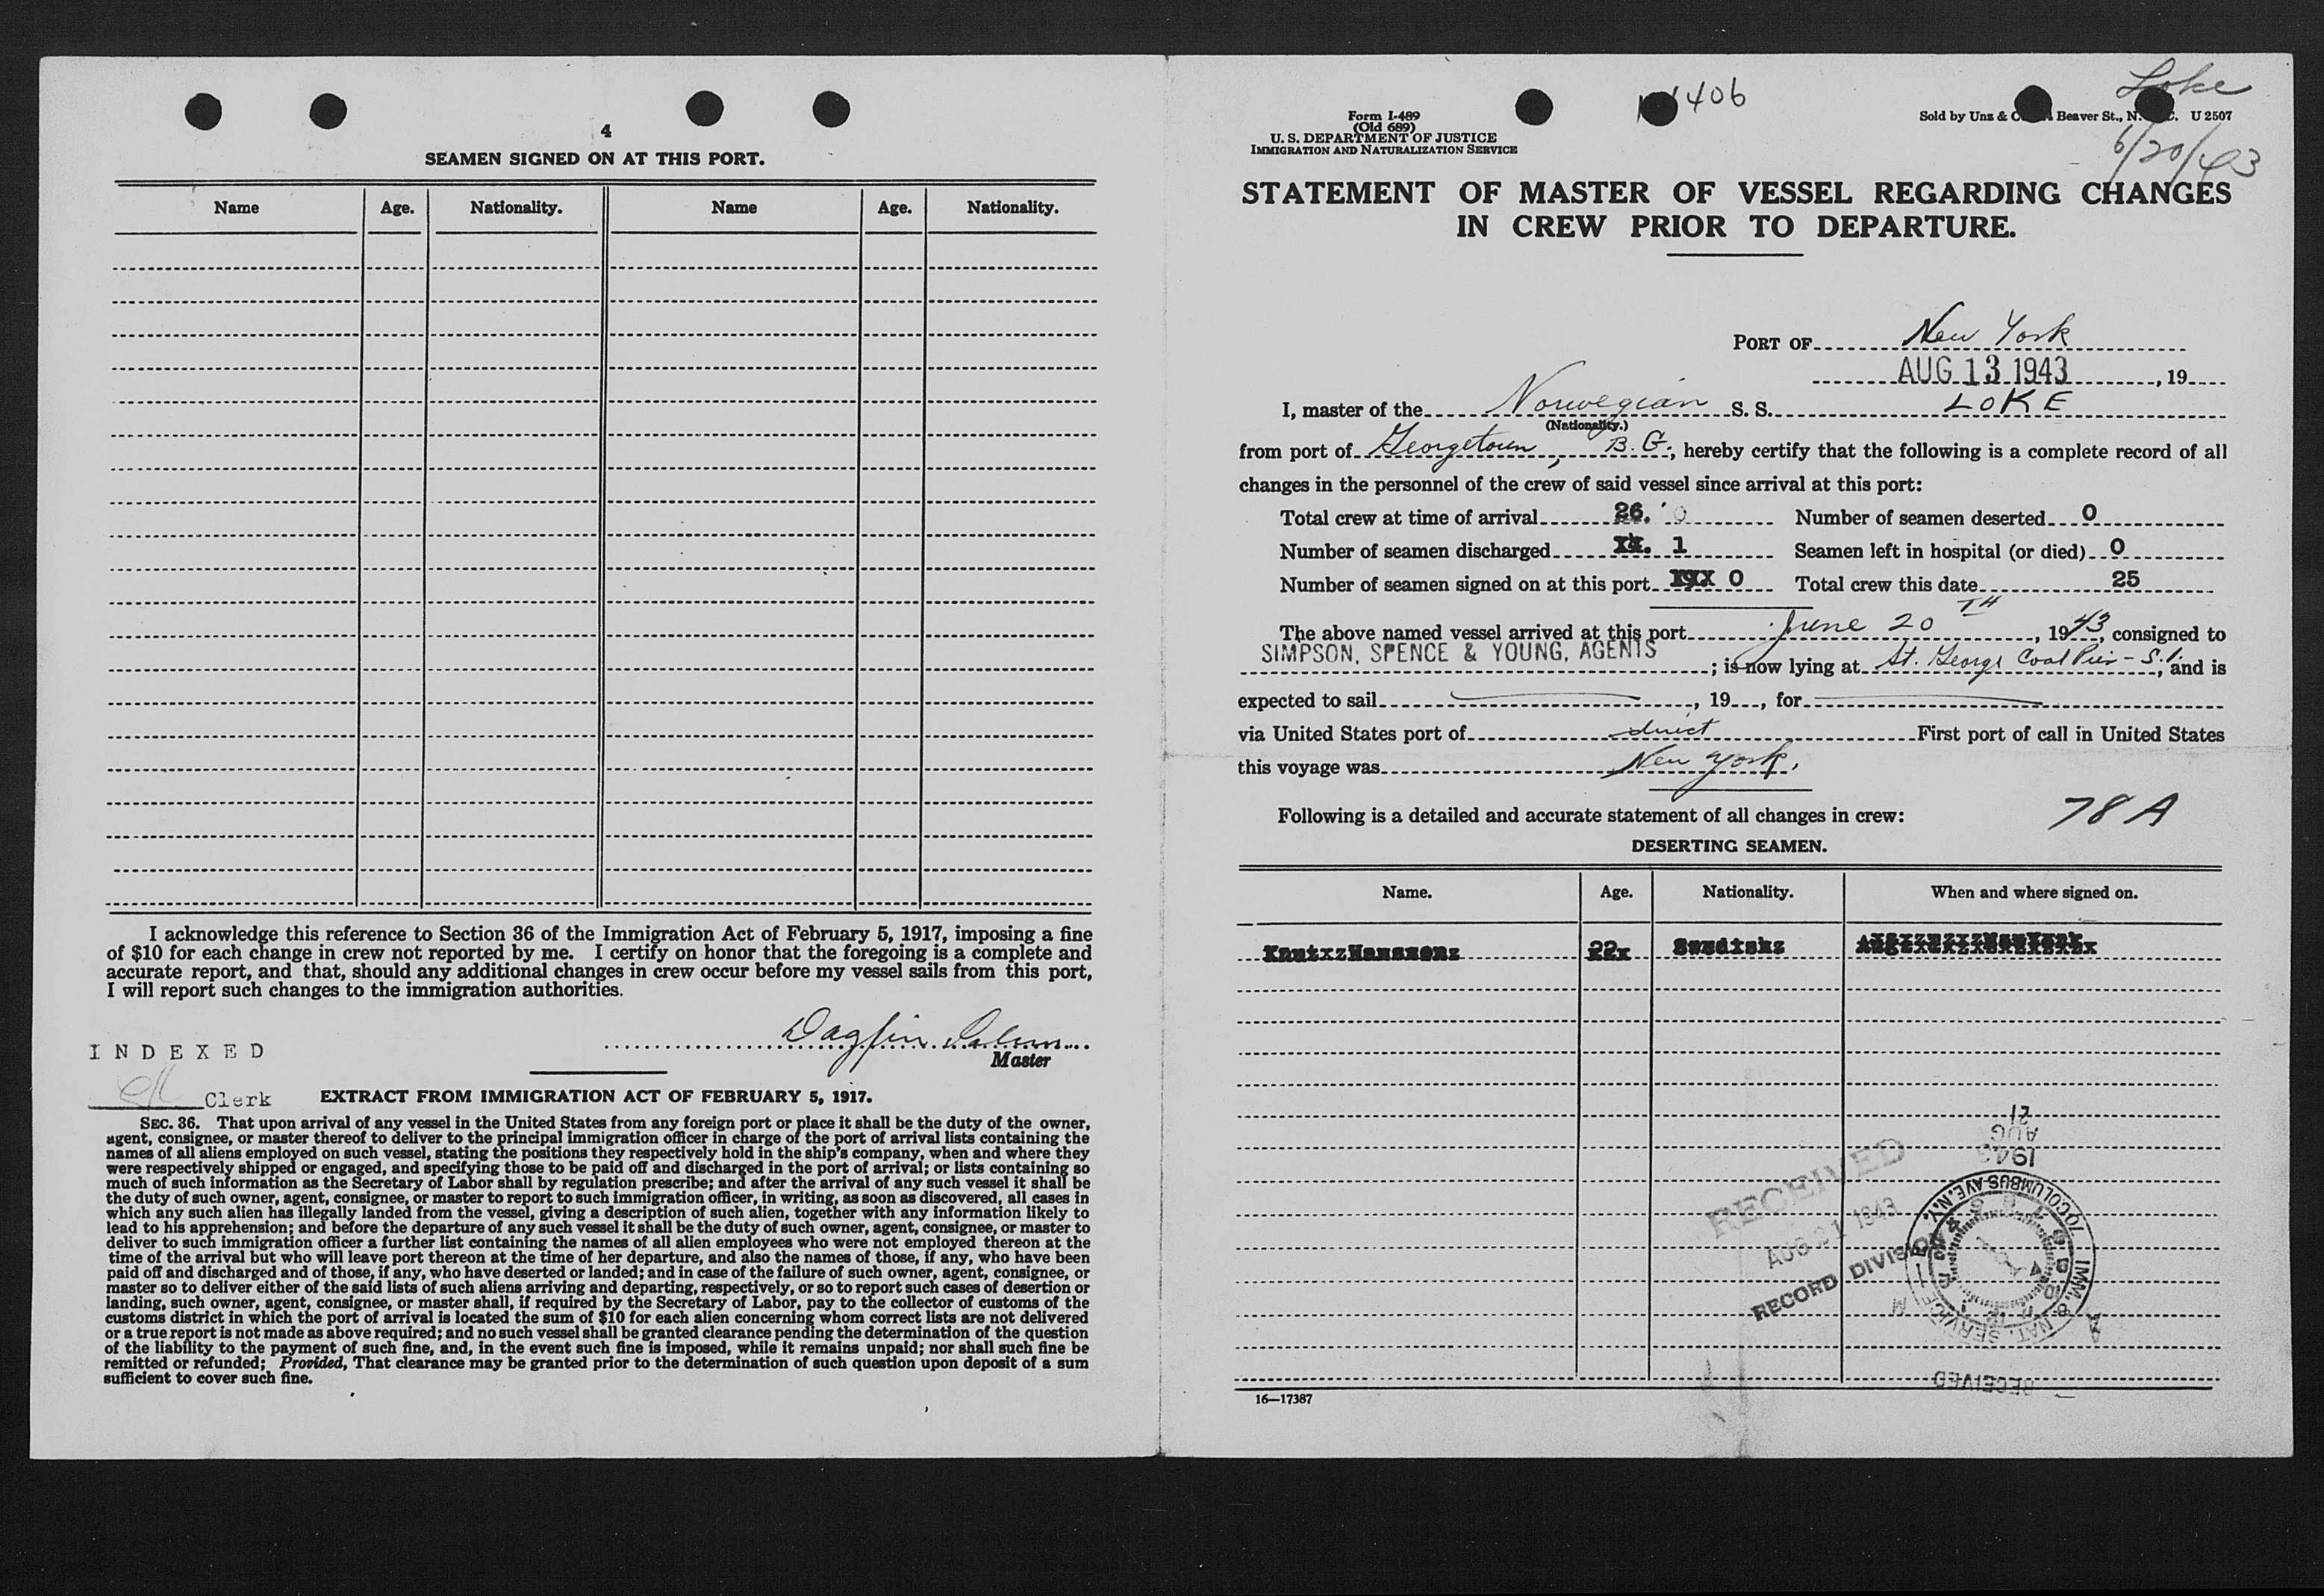 4
SEAMEN SIGNED ON AT THIS PORT.
Name Age. Nationality. Name Age. Nationality.
I acknowledge this reference to Section 36 of the Immigration Act of February 5, 1917, imposing a fine
of $10 for each change in crew not reported by me. I certify on honor that the foregoing is a complete and
accurate report, and that, should any additional changes in crew occur before my vessel sails from this port,
I will report such changes to the immigration authorities.
Dagfin
Master
INDEXED
Clerk
EXTRACT FROM IMMIGRATION ACT OF FEBRUARY 5, 1917.
SEC. 36. That upon arrival of any vessel in the United States from any foreign port or place it shall be the duty of the owner,
agent, consignee, or master thereof to deliver to the principal immigration officer in charge of the port of arrival lists containing the
names of all aliens employed on such vessel, stating the positions they respectively hold in the ship's company, when and where they
were respectively shipped or engaged, and specifying those to be paid off and discharged in the port of arrival; or lists containing so
much of such information as the Secretary of Labor shall by regulation prescribe; and after the arrival of any such vessel it shall be
the duty of such owner, agent, consignee, or master to report to such immigration officer, in writing, as soon as discovered, all cases in
which any such alien has illegally landed from the vessel, giving a description of such alien, together with any information likely to
lead to his apprehension; and before the departure of any such vessel it shall be the duty of such owner, agent, consignee, or master to
deliver to such immigration officer a further list containing the names of all alien employees who were not employed thereon at the
time of the arrival but who will leave port thereon at the time of her departure, and also the names of those, if any, who have been
paid off and discharged and of those, if any, who have deserted or landed; and in case of the failure of such owner, agent, consignee, or
master so to deliver either of the said lists of such aliens arriving and departing, respectively, or so to report such cases of desertion or
landing, such owner, agent, consignee, or master shall, if required by the Secretary of Labor, pay to the collector of customs of the
customs district in which the port of arrival is located the sum of $10 for each alien concerning whom correct lists are not delivered
or a true report is not made as above required; and no such vessel shall be granted clearance pending the determination of the question
of the liability to the payment of such fine, and, in the event such fine is imposed, while it remains unpaid; nor shall such fine be
remitted or refunded; Provided, That clearance may be granted prior to the determination of such question upon deposit of a sum
sufficient to cover such fine.
Form I-489
(Old 689)
U. S. DEPARTMENT OF JUSTICE
IMMIGRATION AND NATURALIZATION SERVICE
1406
Loke
Sold by Unz & Beaver St., N. C. U 2507
6/20/43
STATEMENT OF MASTER OF VESSEL REGARDING CHANGES
IN CREW PRIOR TO DEPARTURE.
PORT OF New York
AUG 13 1943, 19
I, master of the Norwegian S. S. LOKE
(Nationality.)
from port of Georgetown, B. G., hereby certify that the following is a complete record of all
changes in the personnel of the crew of said vessel since arrival at this port:
Total crew at time of arrival 26. Number of seamen deserted 0
Number of seamen discharged 1 Seamen left in hospital (or died) 0
Number of seamen signed on at this port 0 Total crew this date 25
The above named vessel arrived at this port June 20TH, 1943, consigned to
SIMPSON, SPENCE & YOUNG, AGENTS; is now lying at St. George Coal Pier - S.I., and is
expected to sail, 19, for
via United States port of direct First port of call in United States
this voyage was New York.
Following is a detailed and accurate statement of all changes in crew: 78A
DESERTING SEAMEN.
Name. Age. Nationality. When and where signed on.
22x
RECEIVED
AUG 21 1943
RECORD DIVISION
1943
AUG
21
70 COLUMBUS AVE. N.Y.
IMM. & NAT. SERVICE
RECEIVED
16—17387